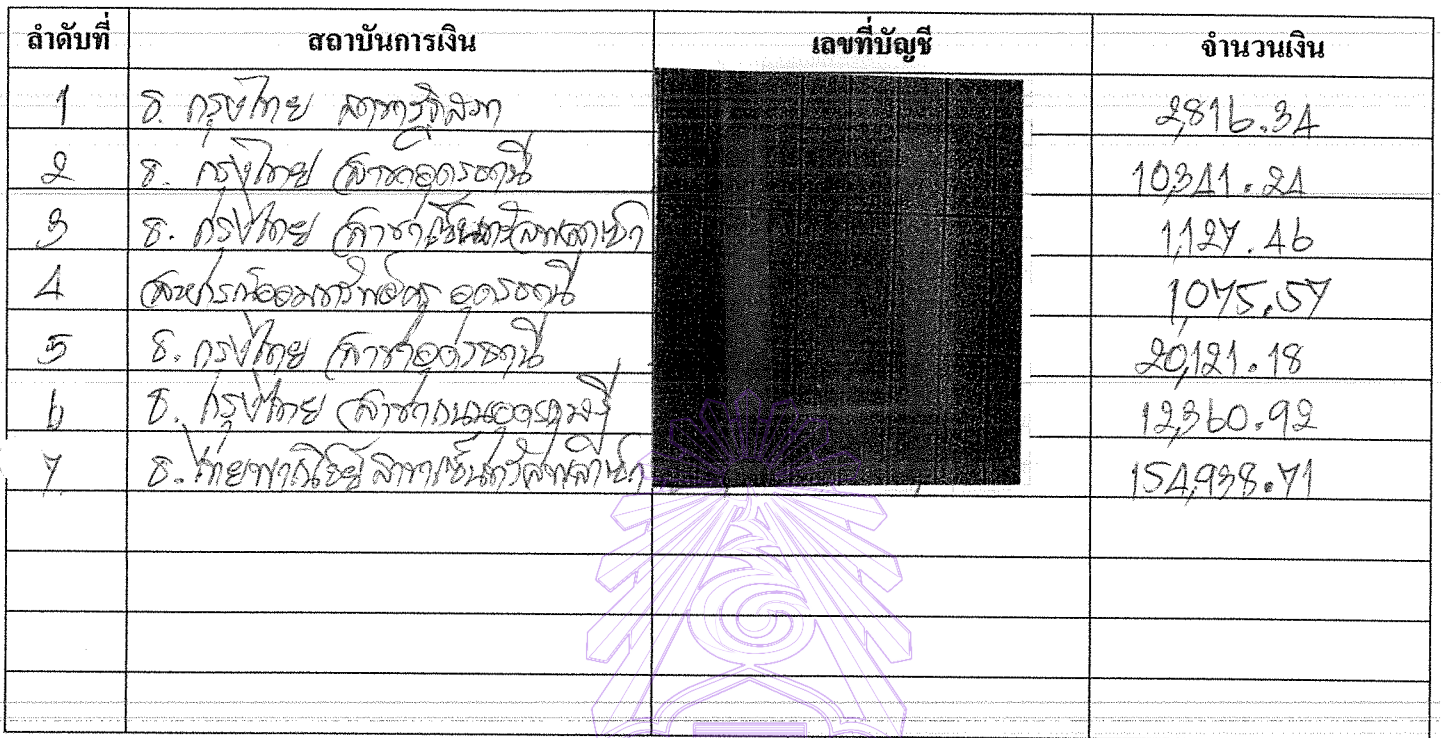 ลำดับที่ สถาบันการเงิน เลขที่บัญชี จำนวนเงิน
1 ธ. กรุงไทย สาขารัฐสภา 2,816.34
2 ธ. กรุงไทย สาขาอุดรธานี 10,341.24
3 ธ. กรุงไทย สาขาเซ็นทรัลพลาซา 1,127.46
4 สหกรณ์ออมทรัพย์ครู อุดรธานี 1,075.57
5 ธ. กรุงไทย สาขาอุดรธานี 20,121.18
6 ธ. กรุงไทย สาขาถนน 12,360.92
7 ธ. ไทยพาณิชย์ สาขาเซ็นทรัลพลาซา 154,938.71